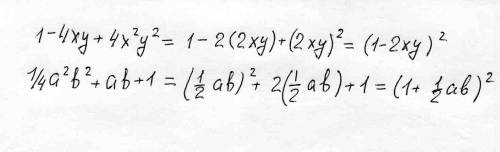 1-4xy+4x²y²= 1-2(2xy)+(2xy)²= (1-2xy)²
1/4a²b²+ab+1 = (1/2 ab)²+ 2(1/2 ab)+1 = (1+ 1/2 ab)²